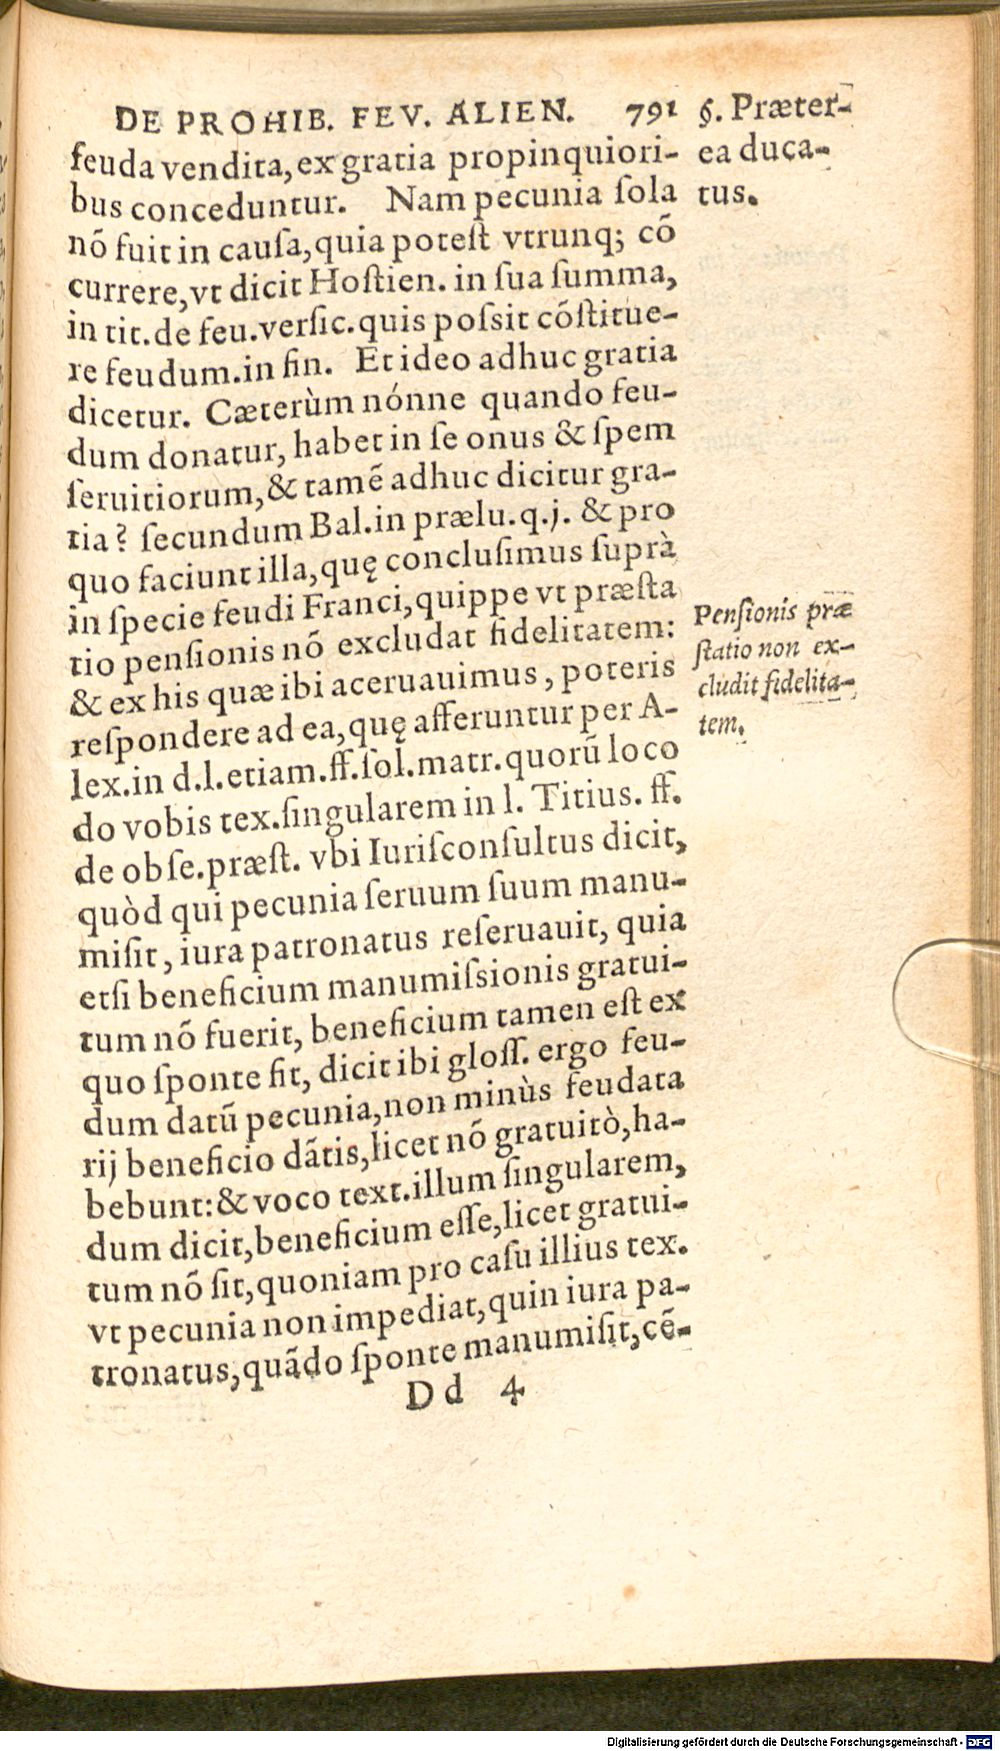 DE PROHIB. FEV. ALIEN. 791
§. Præter-
ea duca-
tus.
feuda vendita, ex gratia propinquiori-
bus conceduntur. Nam pecunia ſola
nõ fuit in cauſa, quia poteſt vtrunq; cõ
currere, vt dicit Hoſtien. in ſua ſumma,
in tit. de feu. verſic. quis poſsit cõſtitue-
re feudum. in fin. Et ideo adhuc gratia
dicetur. Cæterùm nónne quando feu-
dum donatur, habet in ſe onus & ſpem
ſeruitiorum, & tamẽ adhuc dicitur gra-
tia? ſecundum Bal. in prælu. q. j. & pro
quo faciunt illa, quę concluſimus ſuprà
in ſpecie feudi Franci, quippe vt præſta
tio penſionis nõ excludat fidelitatem:
& ex his quæ ibi aceruauimus, poteris
reſpondere ad ea, quę afferuntur per A-
lex. in d. l. etiam. ff. ſol. matr. quorũ loco
do vobis tex. ſingularem in l. Titius. ff.
de obſe. præſt. vbi Iuriſconſultus dicit,
quòd qui pecunia ſeruum ſuum manu-
miſit, iura patronatus reſeruauit, quia
etſi beneficium manumiſsionis gratui-
tum nõ fuerit, beneficium tamen eſt ex
quo ſponte fit, dicit ibi gloſſ. ergo feu-
dum datũ pecunia, non minùs feudata
rij beneficio dãtis, licet nõ gratuitò, ha-
bebunt: & voco text. illum ſingularem,
dum dicit, beneficium eſſe, licet gratui-
tum nõ ſit, quoniam pro caſu illius tex.
vt pecunia non impediat, quin iura pa-
tronatus, quãdo ſponte manumiſit, cẽ-
Penſionis præ
ſtatio non ex-
cludit fidelita-
tem.
Dd 4
Digitalisierung gefördert durch die Deutsche Forschungsgemeinschaft - DFG